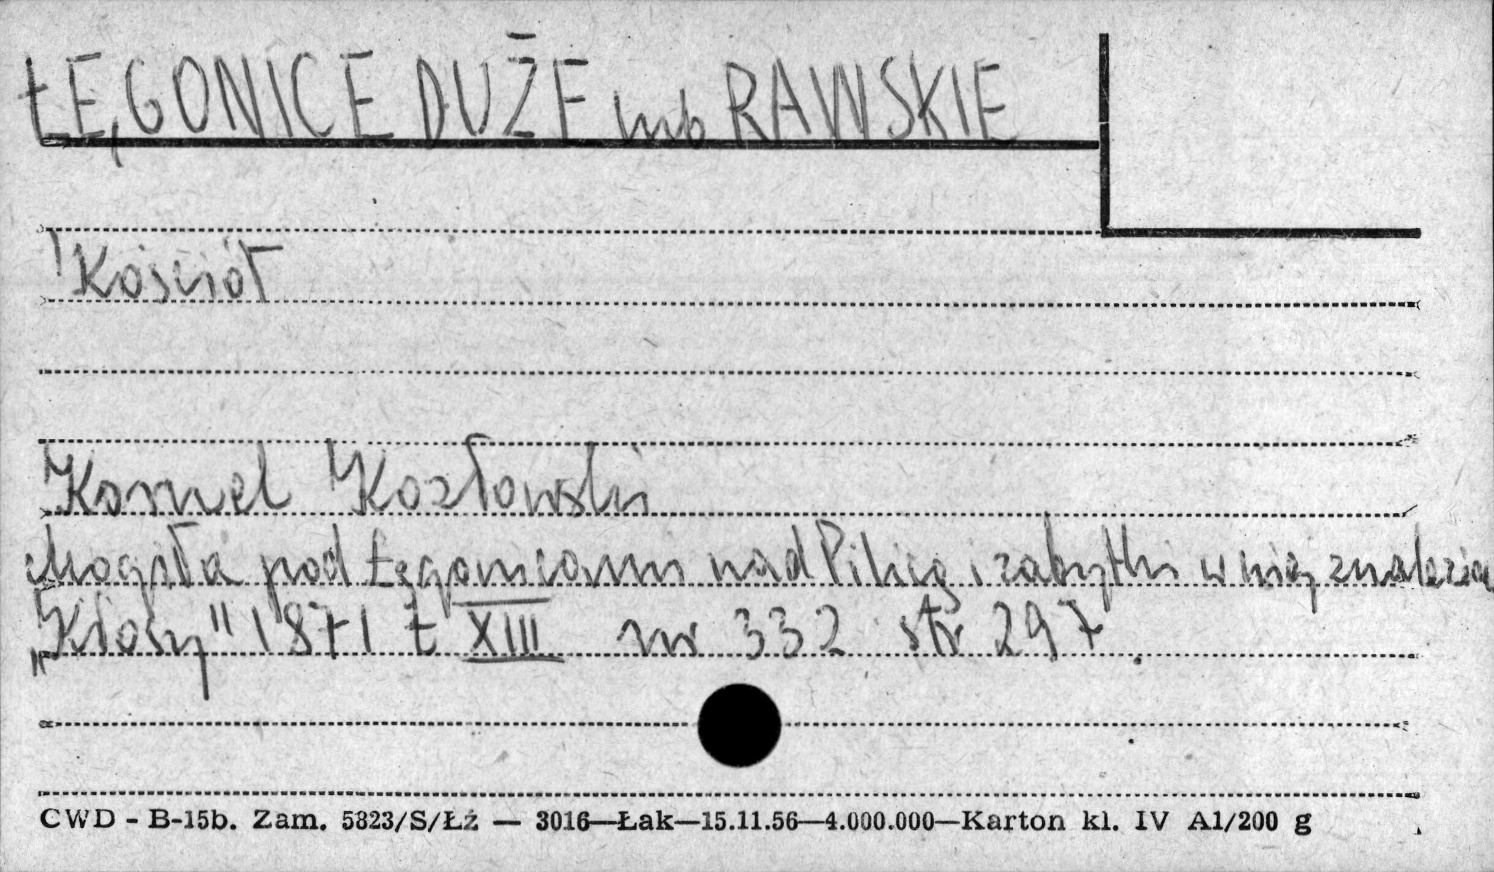 ŁĘGONICE DUŻE lub RAWSKIE
Kościół
Kornel Kozłowski
Mogiła pod Łęgonicami nad Pilicą i zabytki w niej znalezione
„Kłosy" 1871 t XIII nr 332 str 297.
CWD - B-15b. Zam. 5823/S/Łź — 3016—Łak—15.11.56—4.000.000—Karton kl. IV A1/200 g